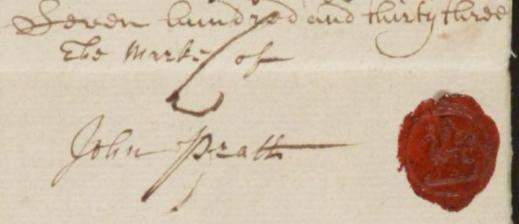 Seven hundred and thirty three
The Marke of
John Pratt